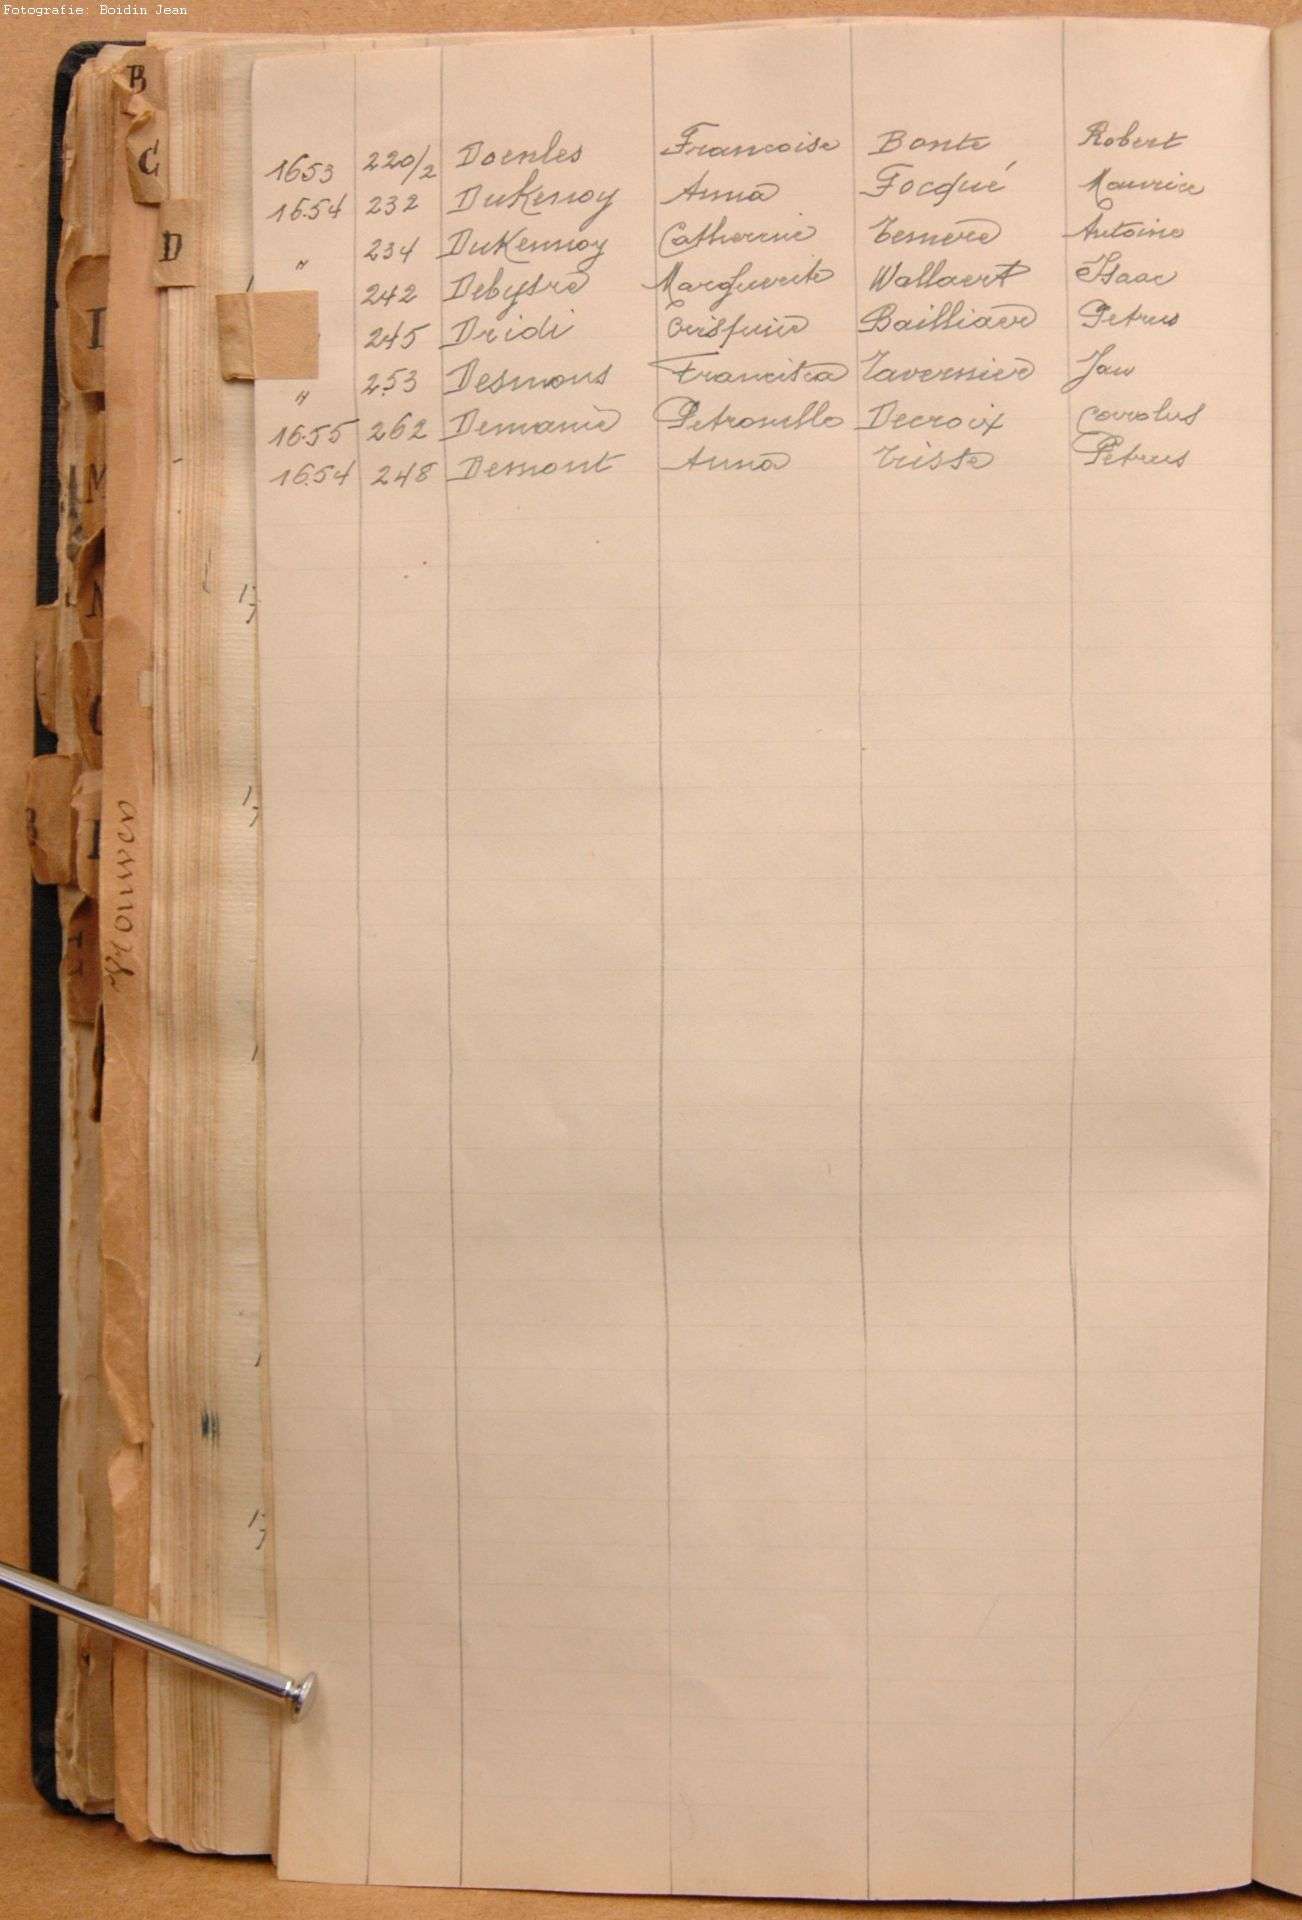 Fotografie: Boidin Jean
B
C
D
I
M
N
Vrouwen
1653 220/2 Doenles Francoise Bonte Robert
1654 232 DuKenoy Anna Focqué Maurice
" 234 DuKennoy Catherine Temere Antoine
242 Debysre Marguerite Wallaert Isaac
245 Dridi Bailliaere Petrus
" 253 Desmons Francisca Tavernier Jan
1655 262 Demanie Petronilla Decroix Carolus
1654 248 Demont Anna Trisse Petrus